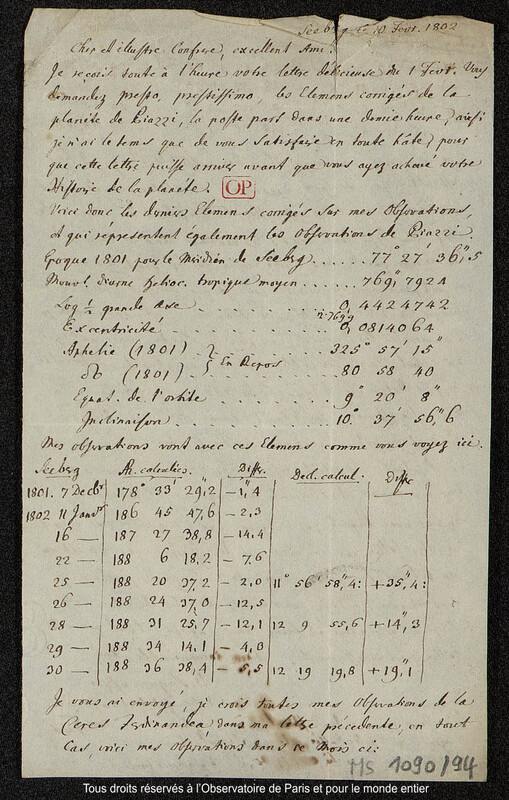 Seeberg le 10 Fevr. 1802
Cher et illustre Confrere, excellent Ami.
Je reçois toute à l'heure votre lettre delicieuse du 1 Fevr. Vous
demandez presto, prestissimo, les Elemens corrigés de la
planète de Piazzi, la poste part dans une demie heure, ainsi
je n'ai le tems que de vous satisfaire en toute hâte, pour
que cette lettre puisse arriver avant que vous ayez achevé votre
Histoire de la planète. OP
Voici donc les derniers Elemens corrigés sur mes Observations,
et qui répresentent également les Observations de Piazzi.
Epoque 1801 pour le Meridien de Seeberg ...... 77° 27 36",5
Mouvt. diurne helioc. tropique moyen ...... 769", 7924
Log ½ grande Axe ...... 0, 4424742
Excentricité ...... 0, 0814064
Aphelie (1801) } en Repos ...... 326° 57' 15"
☊ (1801) } 80 58 40
Equat. de l'orbite ...... 9° 20' 8"
Inclinaison ...... 10° 37' 56",6
Mes observations vont avec ces Elemens comme vous voyez ici.
Seeberg Æ. calculées. Differ. Decl. calcul. Diffc
1801. 7 Decbr 178° 33' 29",2 – 1",4
1802 11 Janvr 186 45 47,6 – 2,3
16 — 187 27 38,8 – 14,4
22 — 188 6 18,2 – 7,6
25 — 188 20 37,2 – 2,0 11° 56' 58",4: +35",4:
26 — 188 24 37,0 – 12,5
28 — 188 31 25,7 – 12,1 12 9 55,6 +14",3
29 — 188 34 14,1 – 4,0
30 — 188 36 38,4 – 5,5 12 19 19,8 +19",1
Je vous ai envoyé, je crois toutes mes Observations de la
Ceres Ferdinandea dans ma lettre précedente, en tout
Cas, voici mes Observations dans ce mois ci:
MS 1090/94
Tous droits réservés à l'Observatoire de Paris et pour le monde entier